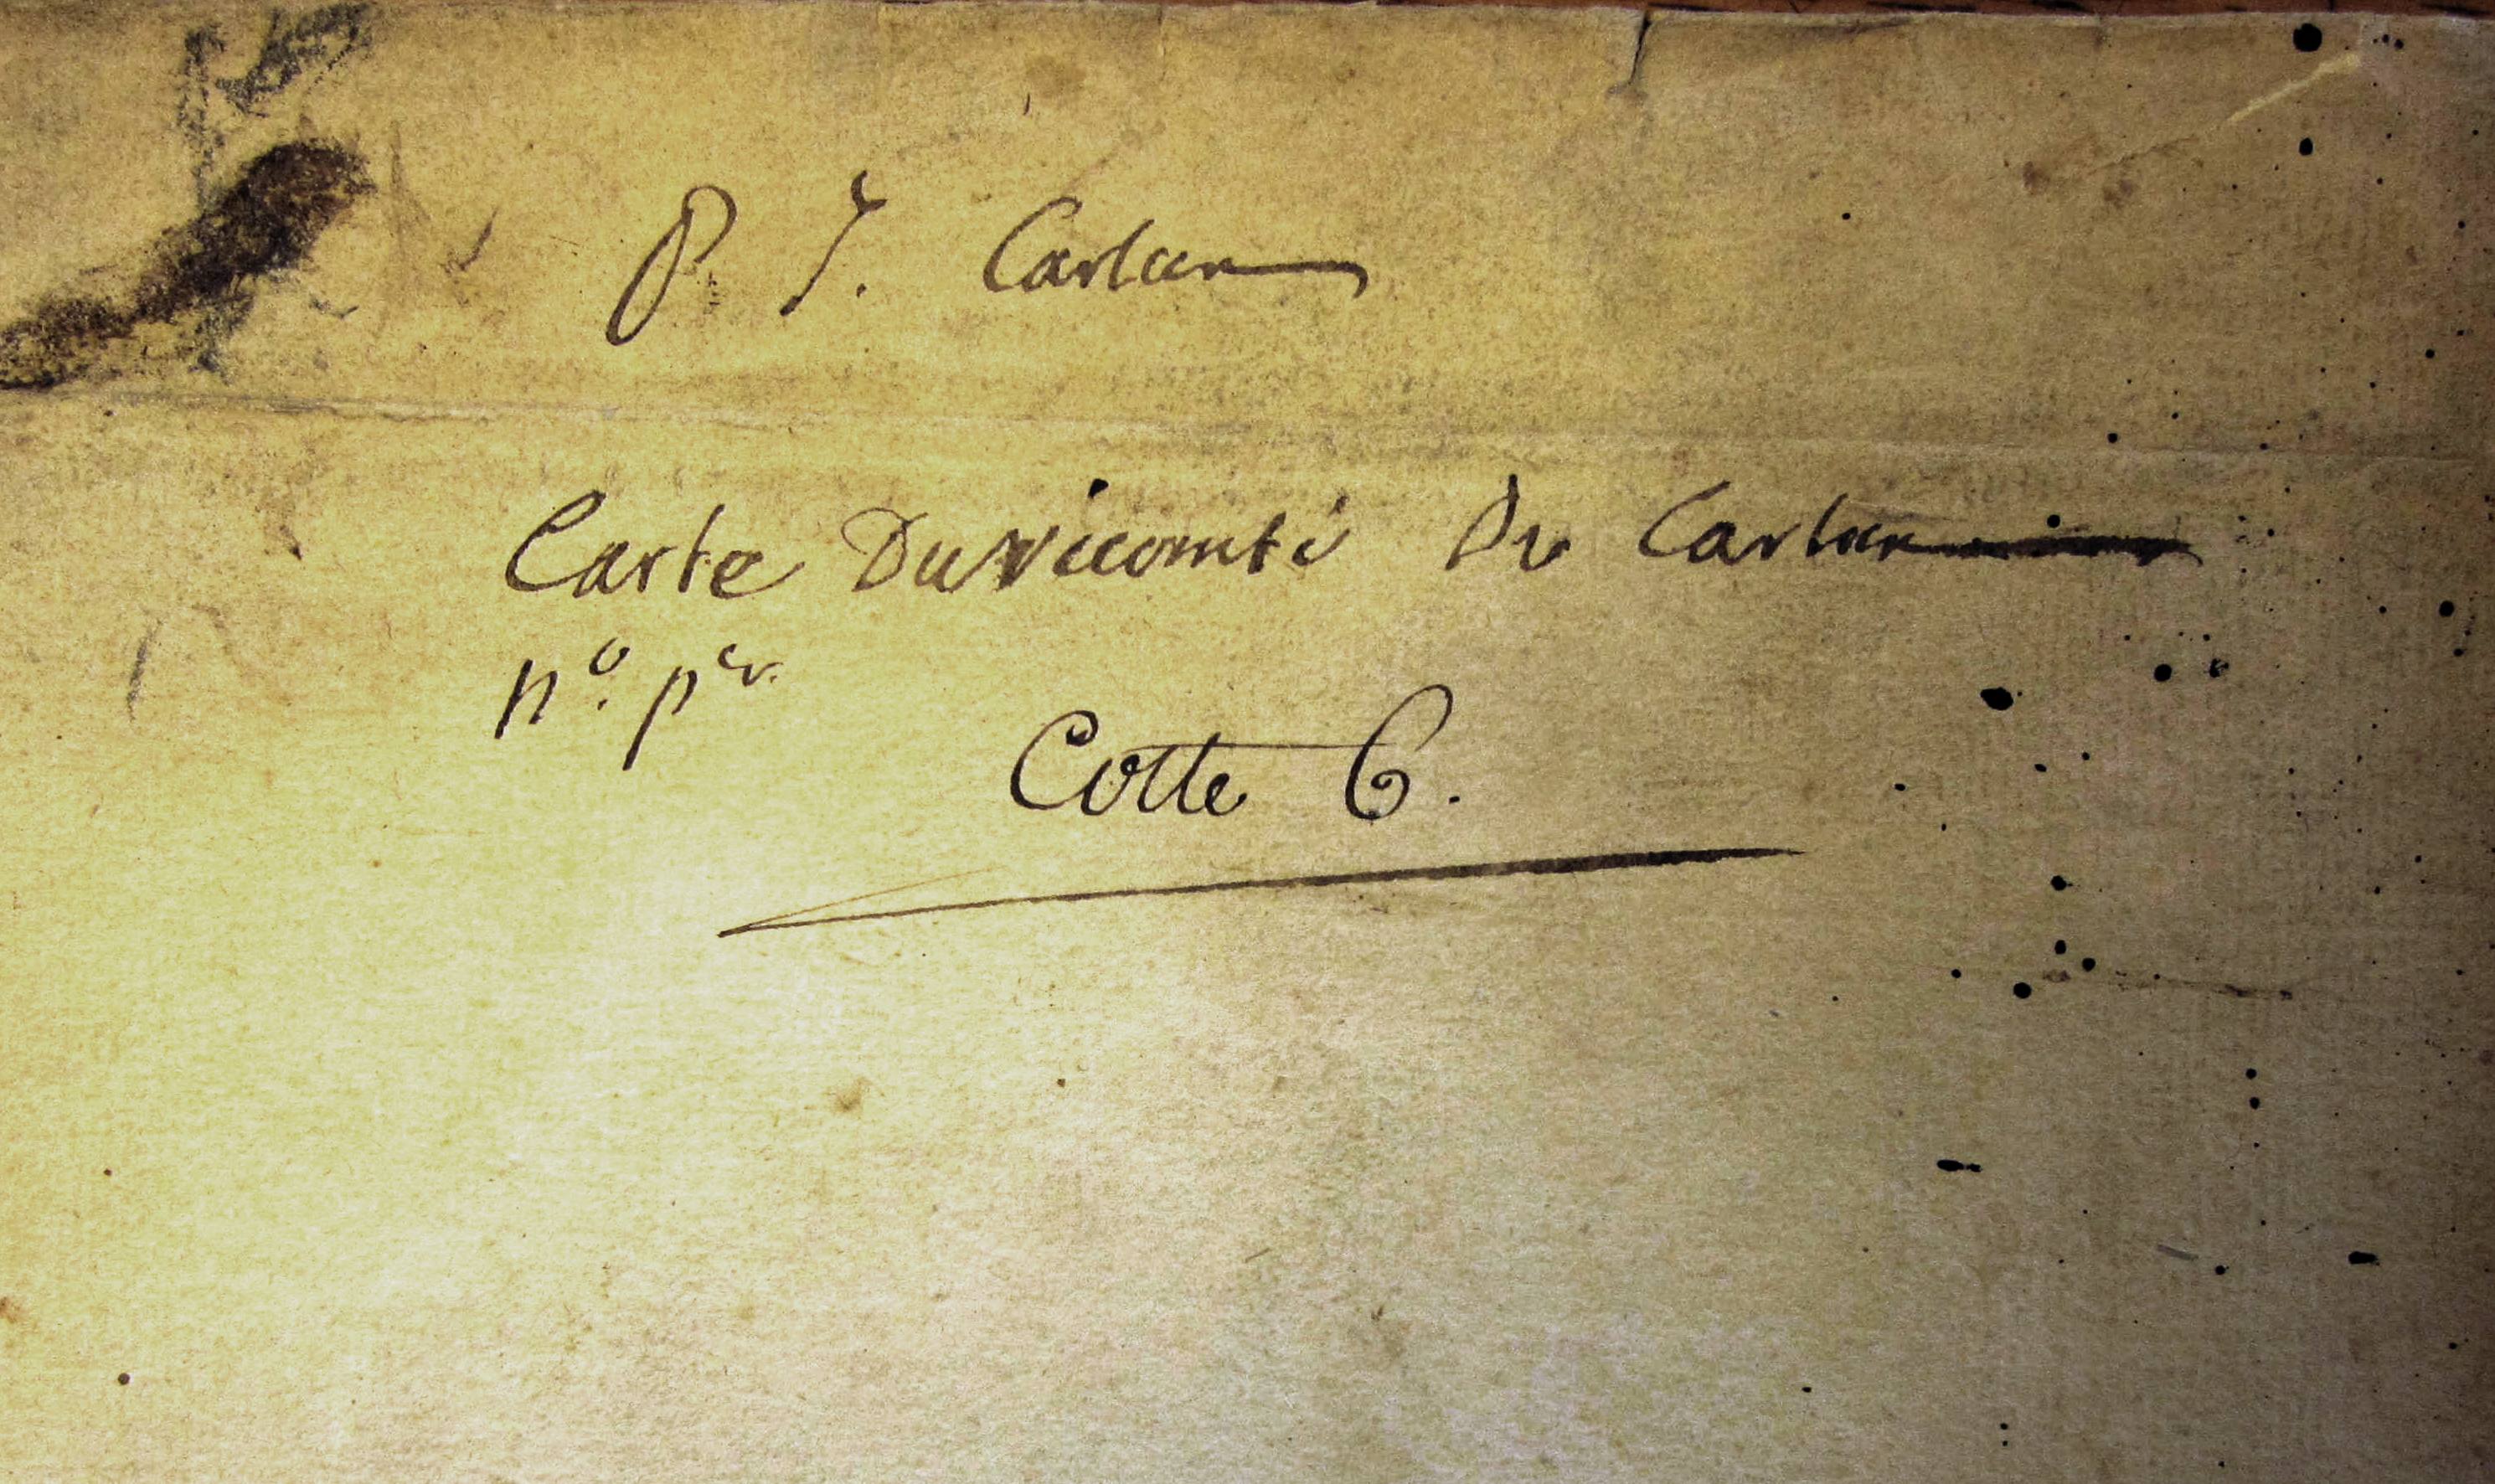 P. J. Carlan
Carte Du vicomté De Carlan
nº. per.
Cotte 6.